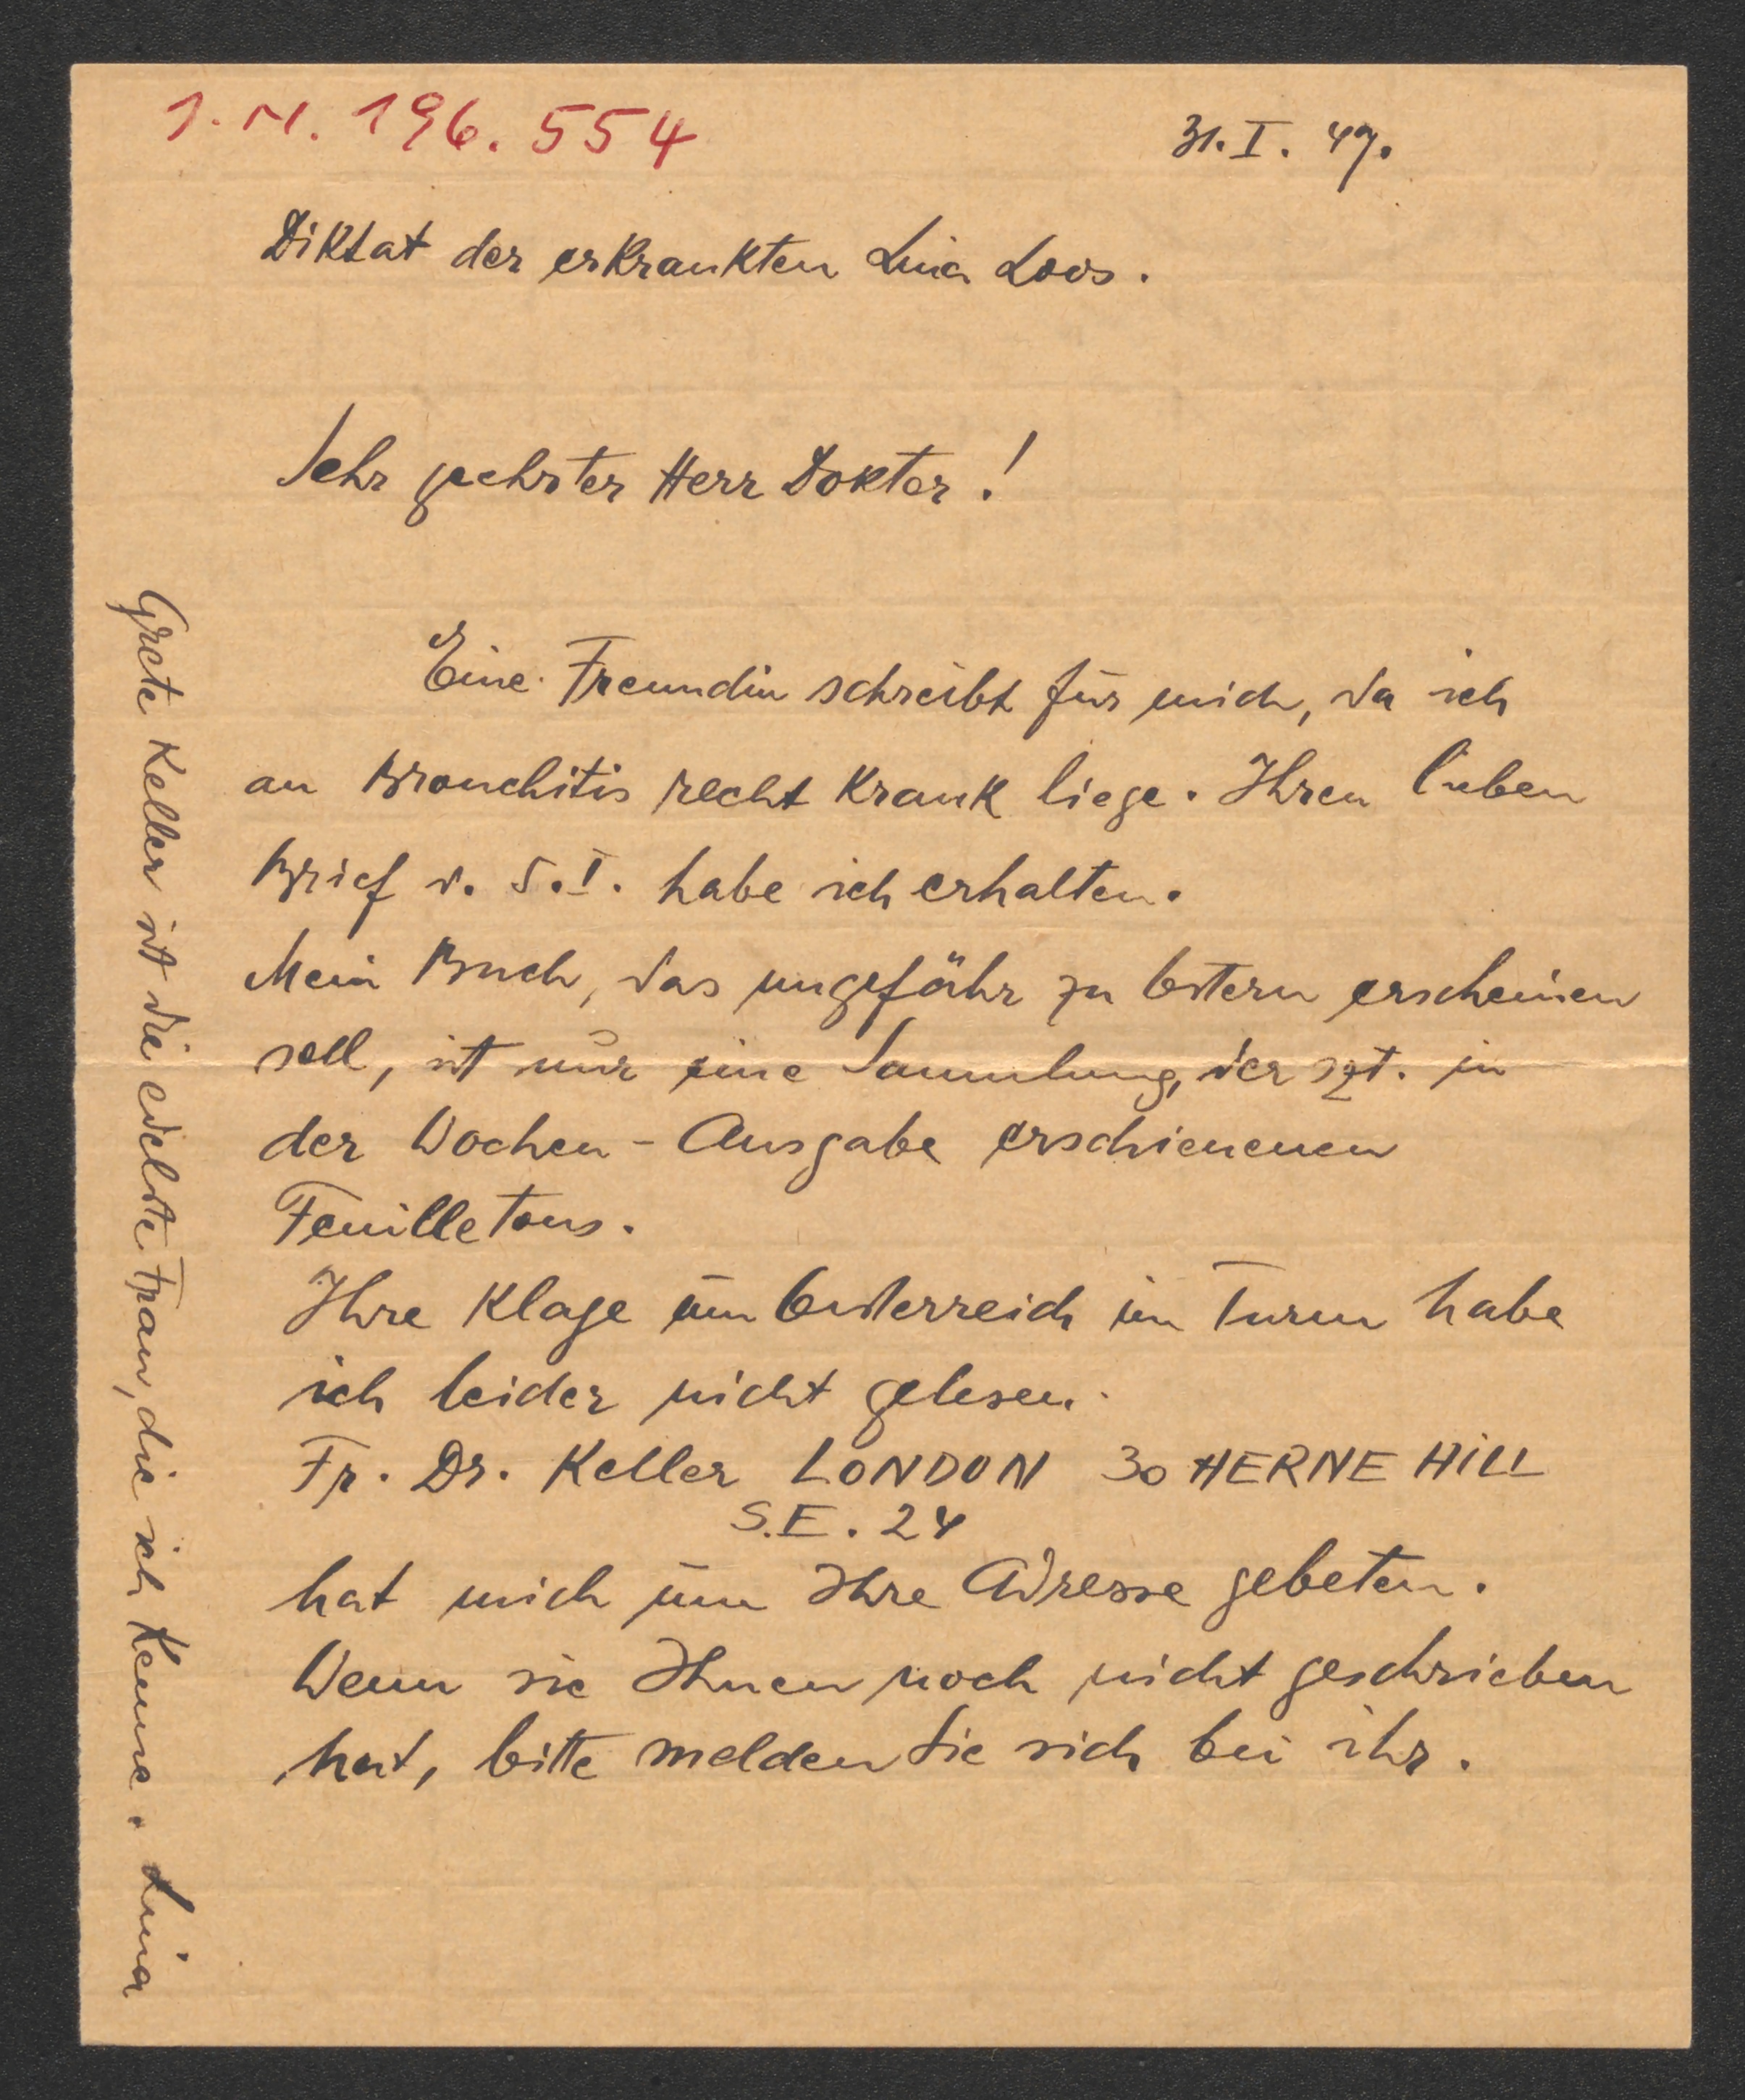 I.N. 196.554
31.I.47.
Diktat der erkrankten Lina Loos.
Sehr geehrter Herr Doktor!
Eine Freundin schreibt für mich, da ich
an Bronchitis recht krank liege. Ihren lieben
Brief v. 5.I. habe ich erhalten.
Mein Buch, das ungefähr zu Ostern erscheinen
soll, ist nur eine Sammlung, der szt. in
der Wochen-Ausgabe erschienenen
Feuilletons.
Ihre Klage um Österreich im Turm habe
ich leider nicht gelesen.
Fr. Dr. Keller LONDON 30 HERNE HILL
S.E. 24
hat mich um Ihre Adresse gebeten.
Wenn sie Ihnen noch nicht geschrieben
hat, bitte melden Sie sich bei ihr.
Grete Keller ist die edelste Frau, die ich kenne. Lina